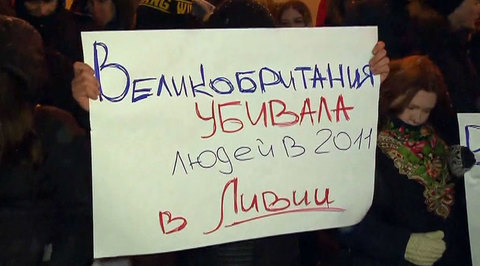 ВЕЛИКОБРИТАНИЯ
УБИВАЛА
ЛЮДЕЙ В 2011
в Ливии